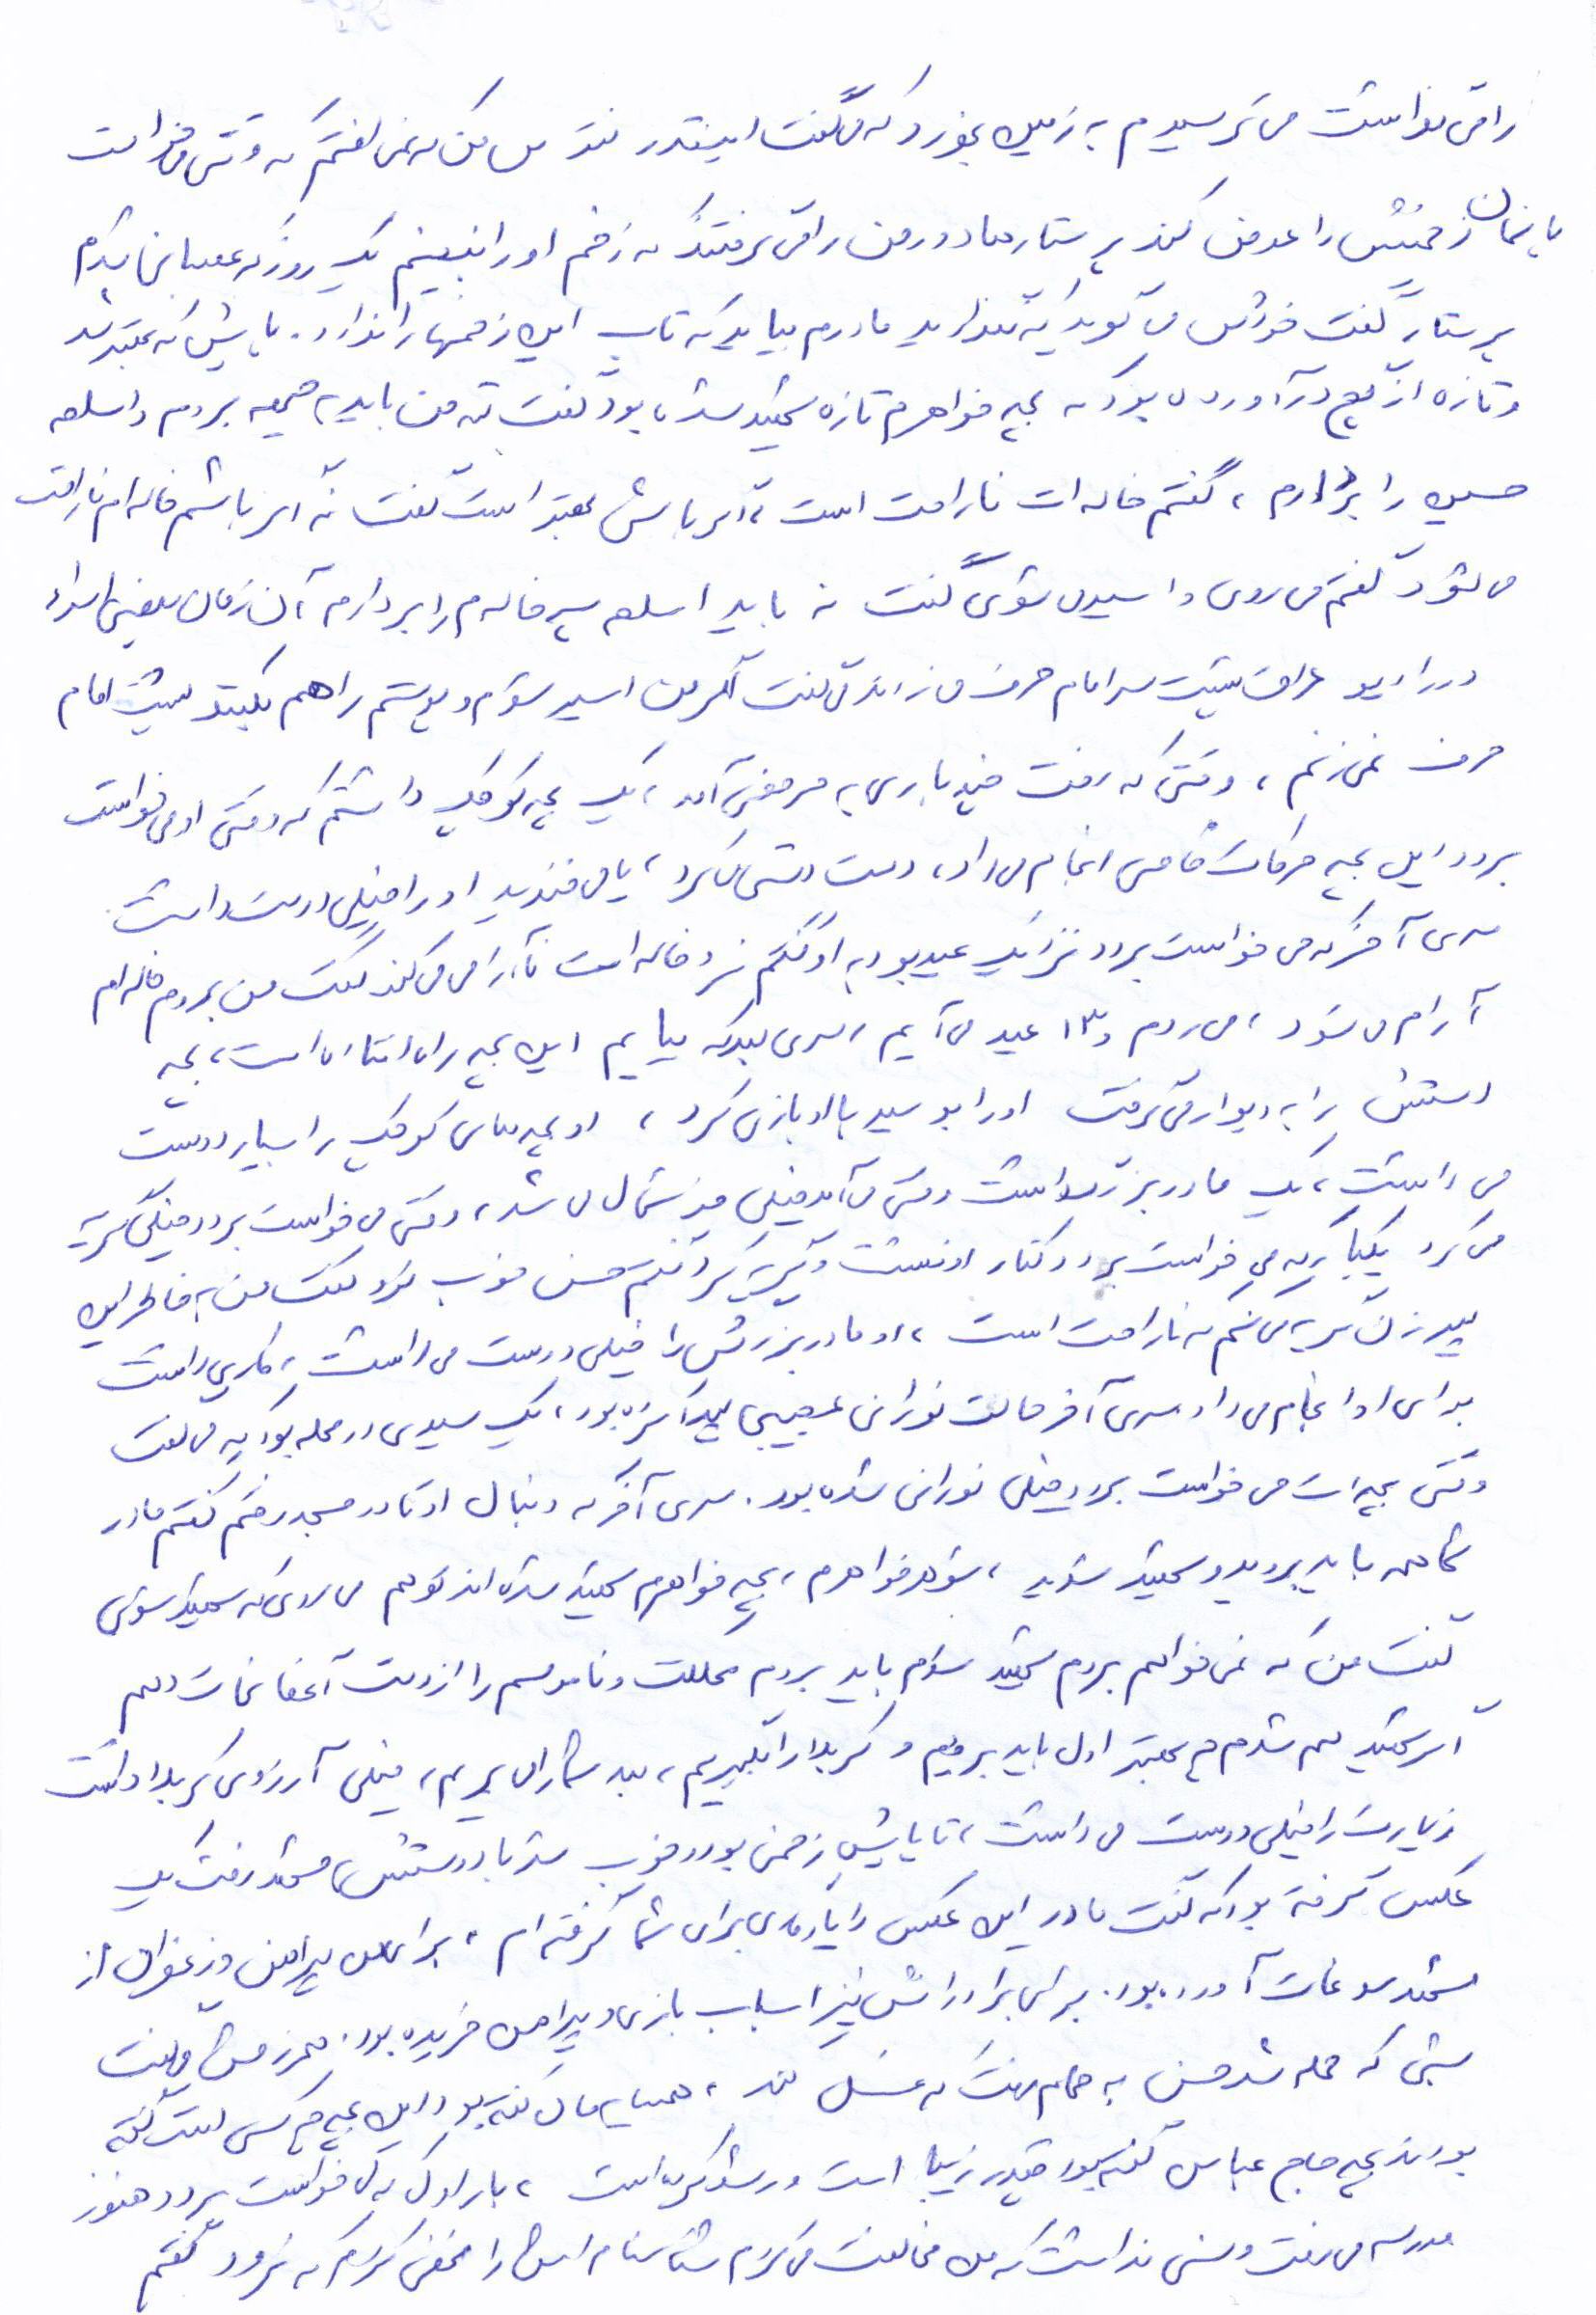 را می‌خواست می‌ترسیدم به زمین بخورد که می‌گفت اینقدر نترس من که نمی‌افتم که وقتی می‌خواست
پانسمان زخمش را عوض کند پرستارها دور من را می‌گرفتند که زخم او را نبینم یک روز که عصبانی شدم
پرستار گفت خودش می‌گوید که نگذارید مادرم بیاید که تاب این زخمها را ندارد. پایش که بهتر شد
و تازه از گچ درآورده بود که بچه خواهرم تازه شهید شده بود گفت نه من باید به جبهه بروم و اسلحه
حسین را بردارم، گفتم خاله‌ات ناراحت است، اگر باشی بهتر است گفت نه اگر باشم خاله‌ام ناراحت
می‌شود گفتم می‌روی و اسیر می‌شوی گفت نه باید اسلحه پسرخاله‌ام را بردارم آن زمان بعضی اسراء
در رادیو عراق پشت سر امام حرف می‌زدند می‌گفت اگر من اسیر شوم و پوستم را هم بکنند پشت امام
حرف نمی‌زنم، وقتی که رفت چند باری به مرخصی آمد، یک بچه کوچک داشتم که وقتی او می‌خواست
برود این بچه حرکات خاصی انجام می‌داد، دست دستی می‌کرد، یا می‌خندید او را خیلی دوست داشت.
سری آخر که می‌خواست برود نزدیک عید بود به او گفتم نرو خاله‌ات ناآرامی می‌کند گفت من بروم خاله‌ام
آرام می‌شود، می‌روم و ۱۳ عید می‌آیم، سری بعد که بیایم این بچه راه افتاده است، بچه
دستش را به دیوار می‌گرفت او را بوسید با او بازی کرد، او بچه‌های کوچک را بسیار دوست
می‌داشت، یک مادربزرگ داشت وقتی می‌آمد خیلی خوشحال می‌شد، وقتی می‌خواست برود خیلی گریه
می‌کرد یکبار که می‌خواست برود کنار او نشست و گریه کرد گفتم حسن خوب نرو گفت من به خاطر این
پیرزن گریه می‌کنم که ناراحت است، او مادربزرگش را خیلی دوست می‌داشت، کاری داشت
برای او انجام می‌داد سری آخر حالت نورانی عجیبی پیدا کرده بود، یک سیدی در محله بود که می‌گفت
وقتی بچه‌ات می‌خواست برود خیلی نورانی شده بود. سری آخر که دنبال او تا در مسجد رفتم گفتم مادر
شما همه باید بروید و شهید شوید، شوهر خواهرم، بچه خواهرم شهید شده‌اند تو هم می‌روی که شهید شوی
گفت من که نمی‌خواهم بروم شهید شوم باید بروم مملکت و ناموسم را از دست آنها نجات دهم
اگر شهید هم شدم چه بهتر اول باید برویم و کربلا را بگیریم، بعد شما را می‌بریم، خیلی آرزوی کربلا داشت
زیارت را خیلی دوست می‌داشت، تا پایش زخمی بود و خوب شد با دوستش به مشهد رفت یک
عکس گرفته بود که گفت مادر این عکس را یادگاری برای شما گرفته‌ام، برای من پیراهن و زعفران از
مشهد سوغات آورده بود. برای برادرانش نیز اسباب بازی و پیراهن خریده بود.
شبی که حمله شد حسن به حمام رفت که غسل کند، همسایه‌مان گفته بود این بچه چه کسی است گفته
بودند بچه حاج عباس گفته بود چقدر زیبا است و رشد کرده است، بار اول که می‌خواست برود هنوز
مدرسه می‌رفت و سنی نداشت که من مخالفت می‌کردم شناسنامه‌اش را مخفی کردم که نرود گفتم